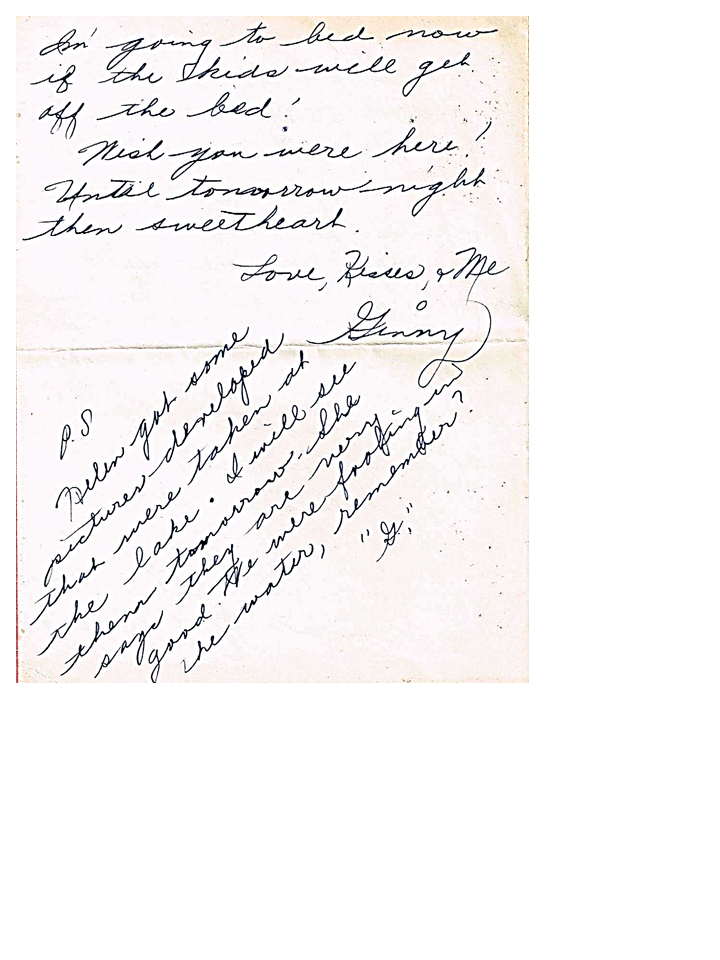 I'm going to bed now
if the kids will get
off the bed!
Wish you were here!
Until tomorrow night
then sweetheart.
Love, Kisses, & Me
Ginny
P.S
Helen got some
pictures developed
that were taken at
the lake. I will see
them tomorrow. She
says they are very
good. We were fooling in
the water, remember?
"G."